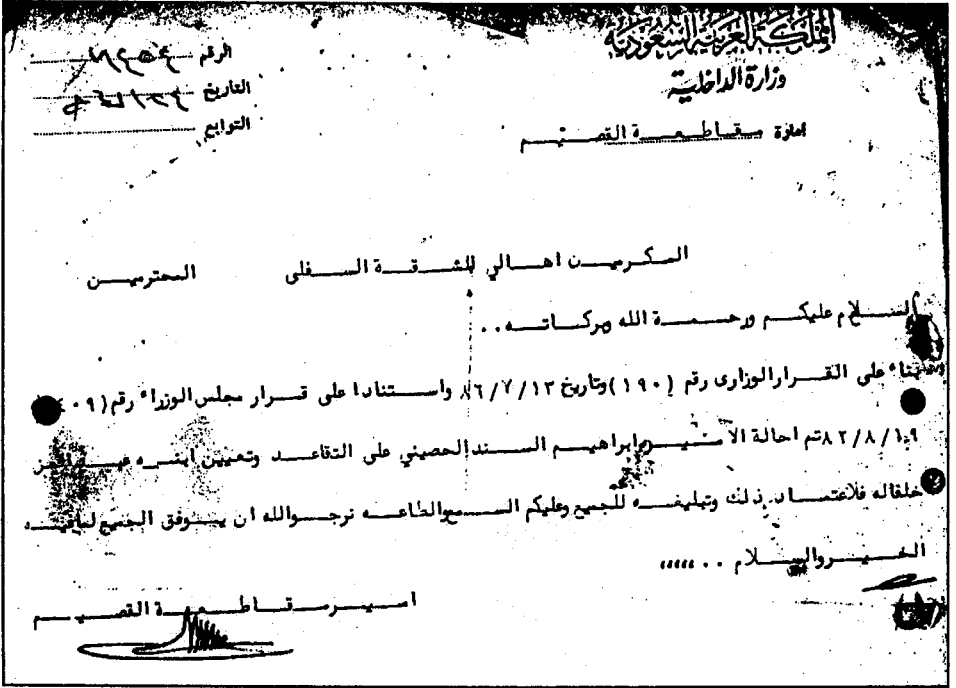 المملكة العربية السعودية
وزارة الداخلية
امارة مقاطعة القصيم
الرقم
التاريخ
التوابع
المكرمين اهالي الشقة السفلى المحترمين
السلام عليكم ورحمة الله وبركاته . .
بناء على القرار الوزارى رقم (١٩٠) وتاريخ ٨٦/٧/١٣ واستنادا على قرار مجلس الوزراء رقم
٨٢/٨/١٩ تم احالة الامير ابراهيم السند الحصيني على التقاعد وتعيين ابنه
خلفاله فلاعتماد ذلك وتبليغه للجميع وعليكم السمع والطاعه نرجو الله ان يوفق الجميع لمافيه
الخير والسلام . . ،،،،،
امير مقاطعة القصيم